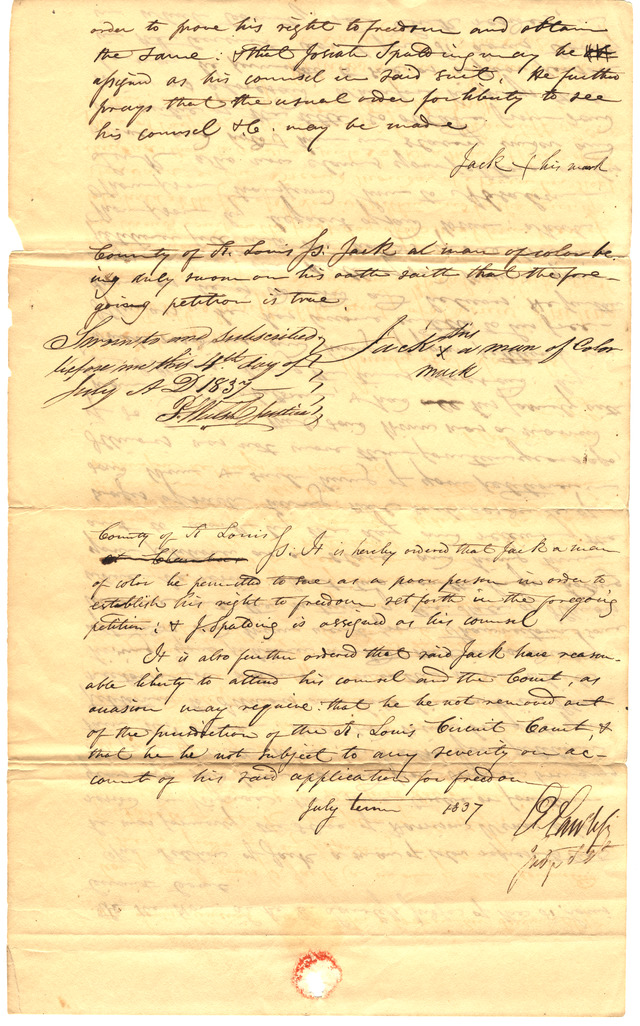 order to prove his right to freedom and obtain
the same: & that Josiah Spalding may be
assigned as his counsel in said suit. He further
prays that the usual order for liberty to see
his counsel &c. may be made
Jack X his mark
County of St. Louis Ss: Jack a man of color be-
ing duly sworn on his oath saith that the fore-
going petition is true
Sworn to and subscribed
before me this 4th day of
July A D 1837
Justice
his
Jack X a man of Color
mark
County of St Louis
at Chambers Ss: It is hereby ordered that Jack a man
of color be permitted to sue as a poor person in order to
establish his right to freedom set forth in the foregoing
petition: & J. Spalding is assigned as his counsel
It is also further ordered that said Jack have reason-
able liberty to attend his counsel and the Court, as
occasion may require: that he be not removed out
of the jurisdiction of the St. Louis Circuit Court, &
that he be not subject to any severity on ac-
count of his said application for freedom
July term 1837